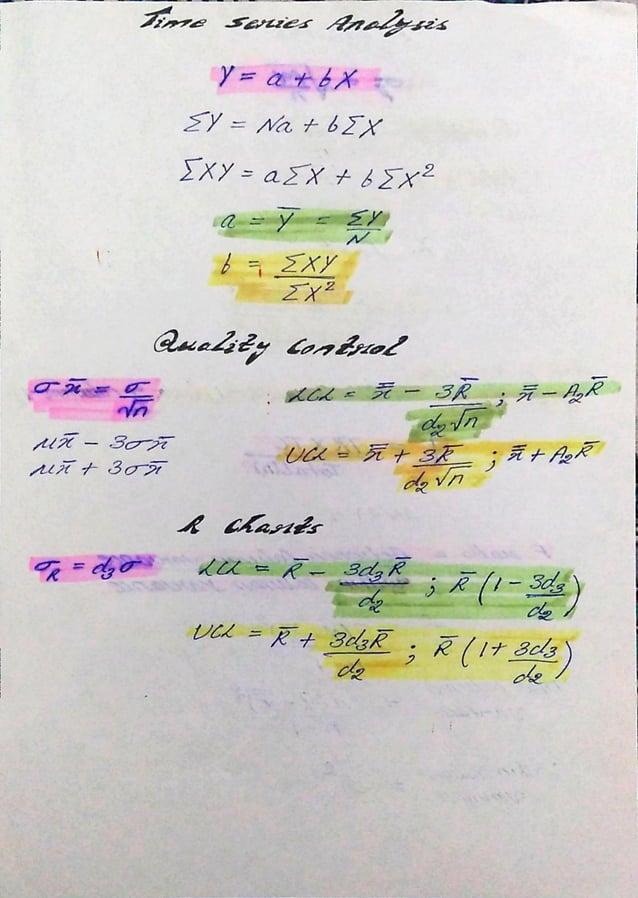 Time Series Analysis
Y = a + bX
ΣY = Na + bΣX
ΣXY = aΣX + bΣX²
a = Y̅ = ΣY/N
b = ΣXY/ΣX²
Quality Control
σx̄ = σ/√n
LCL = x̿ - 3R̄/d₂√n ; x̿ - A₂R̄
μx̄ - 3σx̄
UCL = x̿ + 3R̄/d₂√n ; x̿ + A₂R̄
μx̄ + 3σx̄
R Charts
σR = d₃σ
LCL = R̄ - 3d₃R̄/d₂ ; R̄ (1 - 3d₃/d₂)
UCL = R̄ + 3d₃R̄/d₂ ; R̄ (1 + 3d₃/d₂)